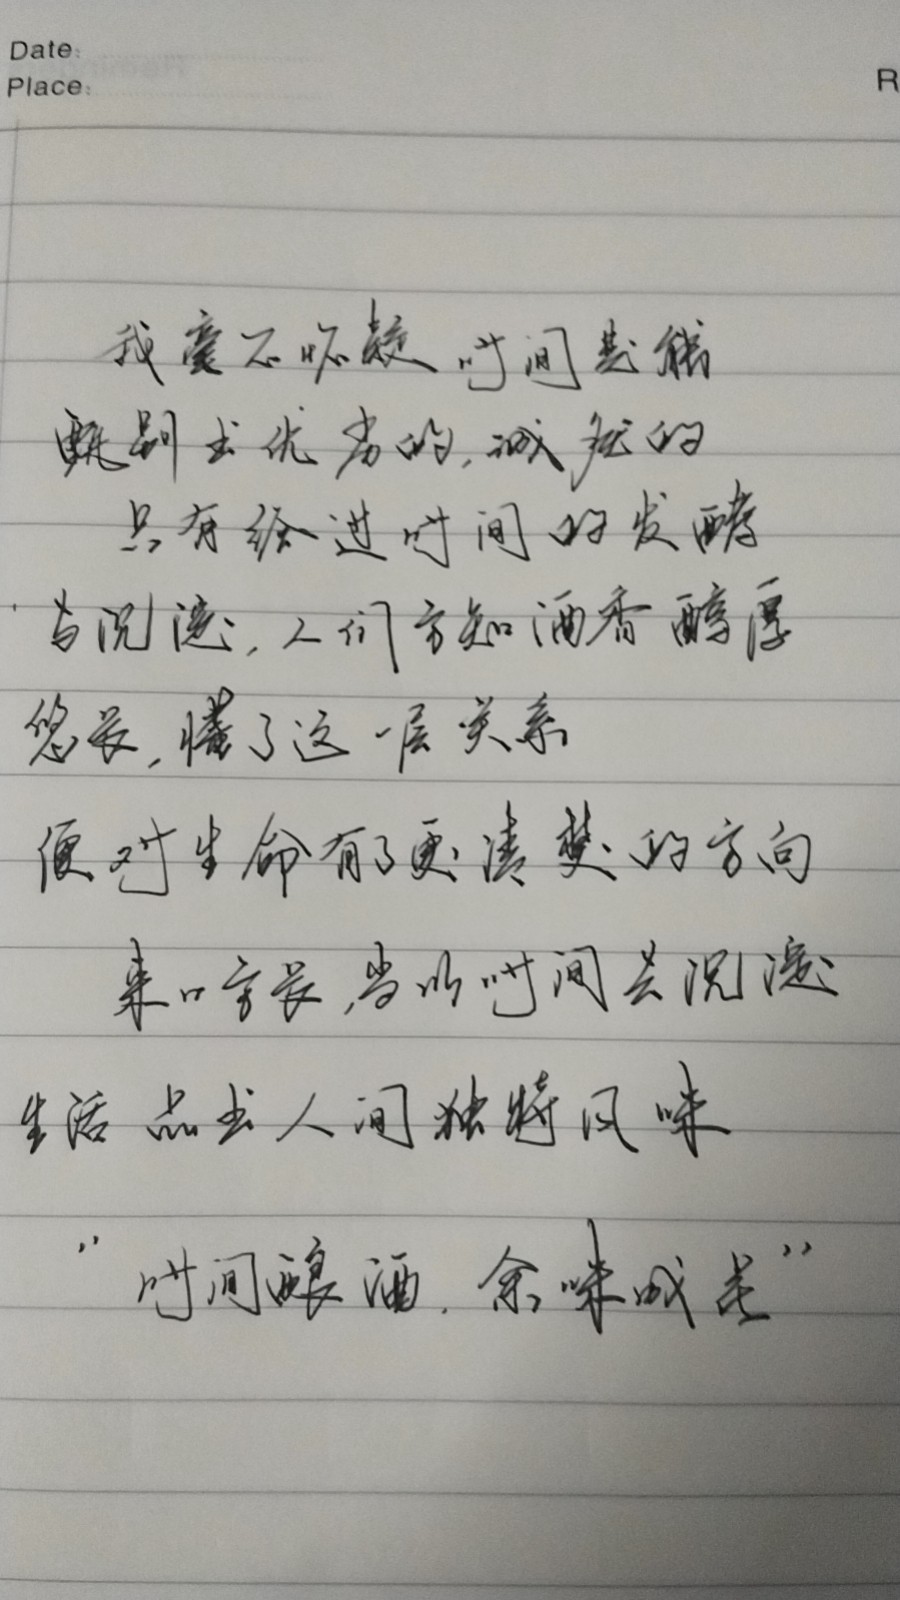 Date:
Place:
R
我毫不怀疑时间是能
甄别出优劣的,诚然的
只有经过时间的发酵
与沉淀,人们方知酒香醇厚
悠长,懂了这一层关系
便对生命有了更清楚的方向
来日方长,当以时间去沉淀
生活 品出人间独特风味
"时间酿酒.余味成花"